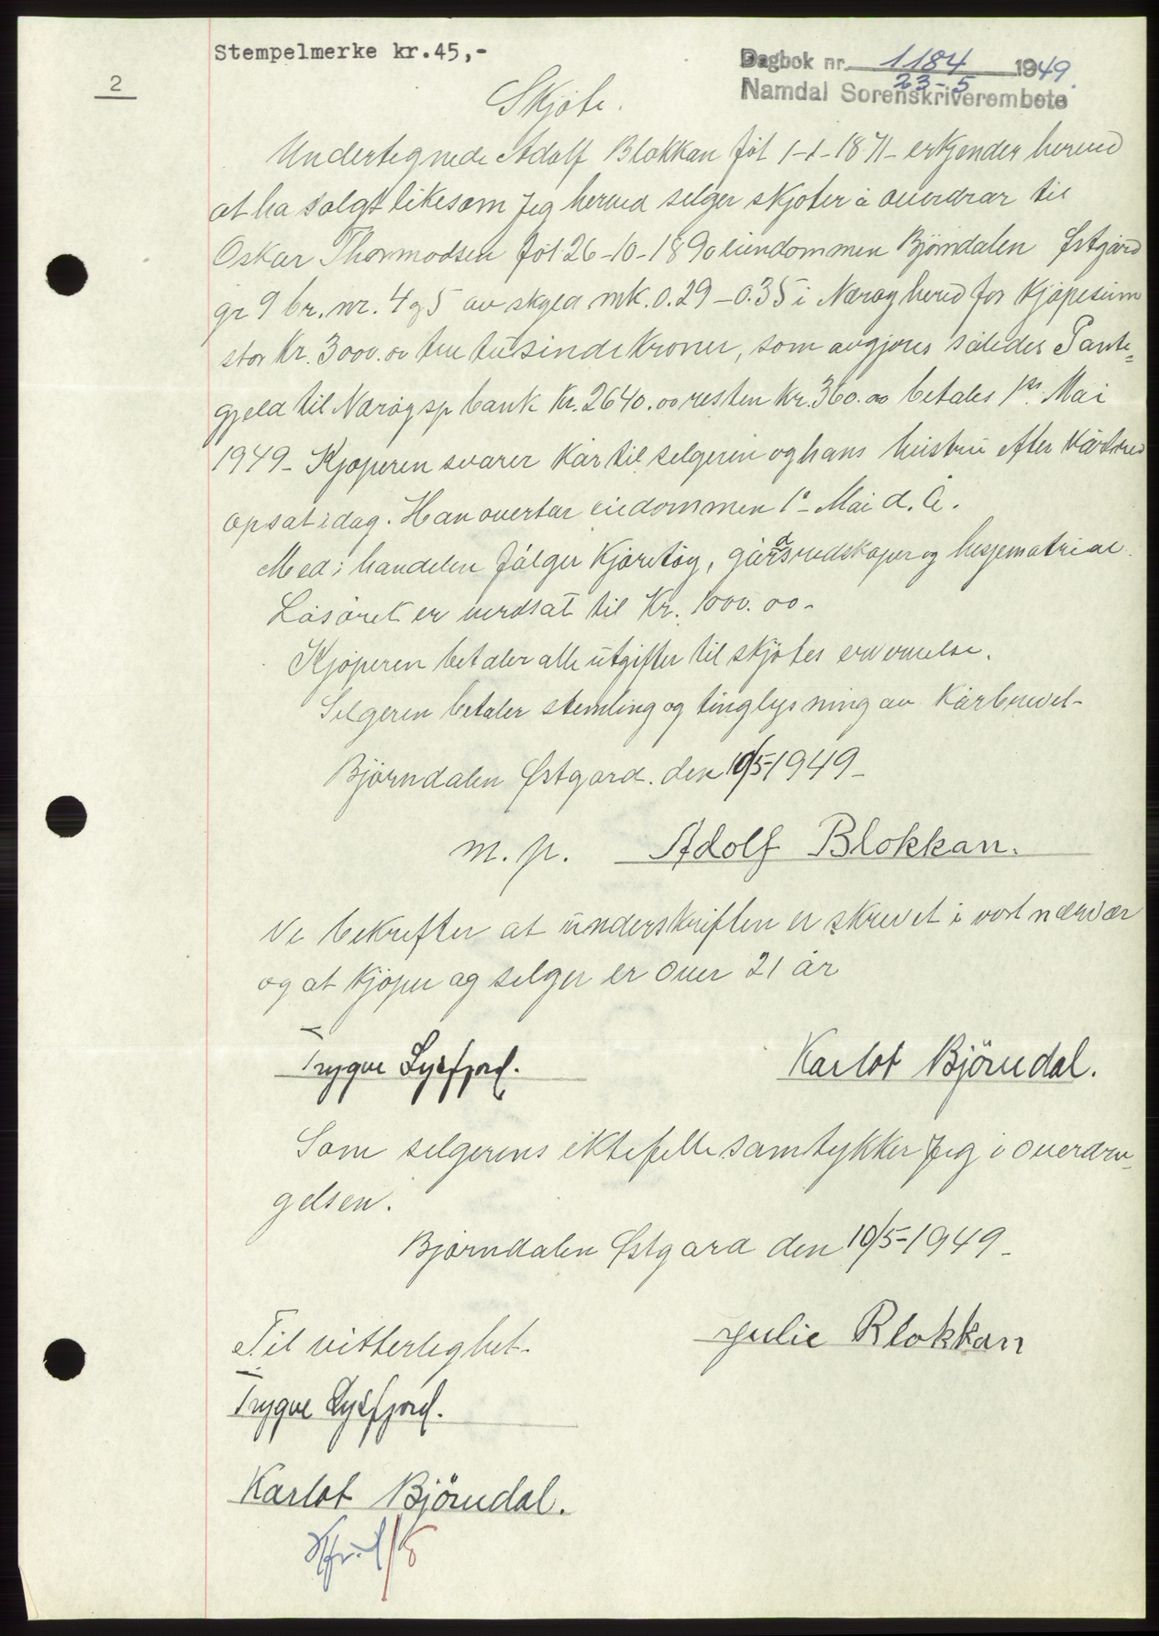 Stempelmerke kr.45,-
Dagbok nr. 1184 1949.
2
23-5
Namdal Sorenskriverembete
Skjöte.
Undertegnede Adolf Blokkan föt 1-1-1871- erkjender herved
at ha solgt likesom Jeg herved selger skjöter å overdrar til
Oskar Thormodsen föt 26-10-1890 eiendommen Björndalen Östgård
gr 9 br. nr. 4 og 5 av skyld mk. 0.29-0.35 i Næröy hered for Kjöpesum
stor Kr. 3000.00 tre tusinde Kroner, som avgjöres således Pante=
gjeld til Næröy sp bank Kr. 2640.00 resten Kr. 360.00 betales 1ste Mai
1949- Kjöperen svarer Kår til selgeren og hans hustru efter Kårbrev
opsat idag. Han overtar eiedommen 1ste Mai d. Å.
Med i handelen fölger Kjöretöy, gårsredskaper og hesjematrial.
Lösöret er verdsat til Kr. 1000.00-
Kjöperen betaler alle utgifter til skjötes ervervelse.
Selgeren betaler stemling og tinglysning av Kårbrevet-
Björndalen Östgard. den 10/5-1949-
m. p. Adolf Blokkan.
Vi bekrefter at underskriften er skrevet i vort nærvær
og at Kjöper og selger er over 21 år
Trygve Lysfjord. Karlot Björndal.
Som selgerens ektefelle samtykker Jeg i overdra-
gelsen.
Björndalen Östgard den 10/5-1949-
Til vitterlighet- Julie Blokkan
Trygve Lysfjord.
Karlot Björndal.